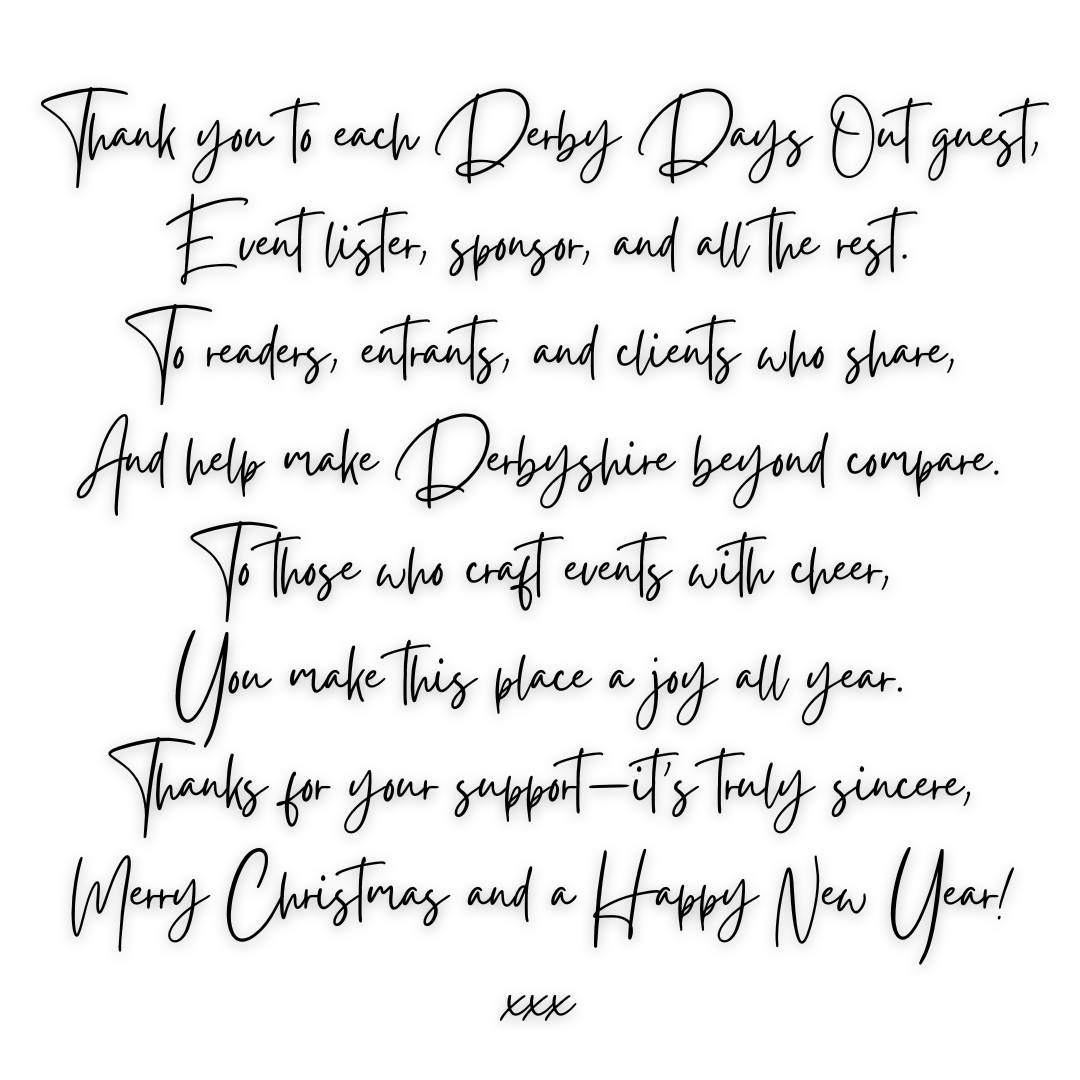 Thank you to each Derby Days Out guest,
Event lister, sponsor, and all the rest.
To readers, entrants, and clients who share,
And help make Derbyshire beyond compare.
To those who craft events with cheer,
You make this place a joy all year.
Thanks for your support—it's truly sincere,
Merry Christmas and a Happy New Year!
xxx